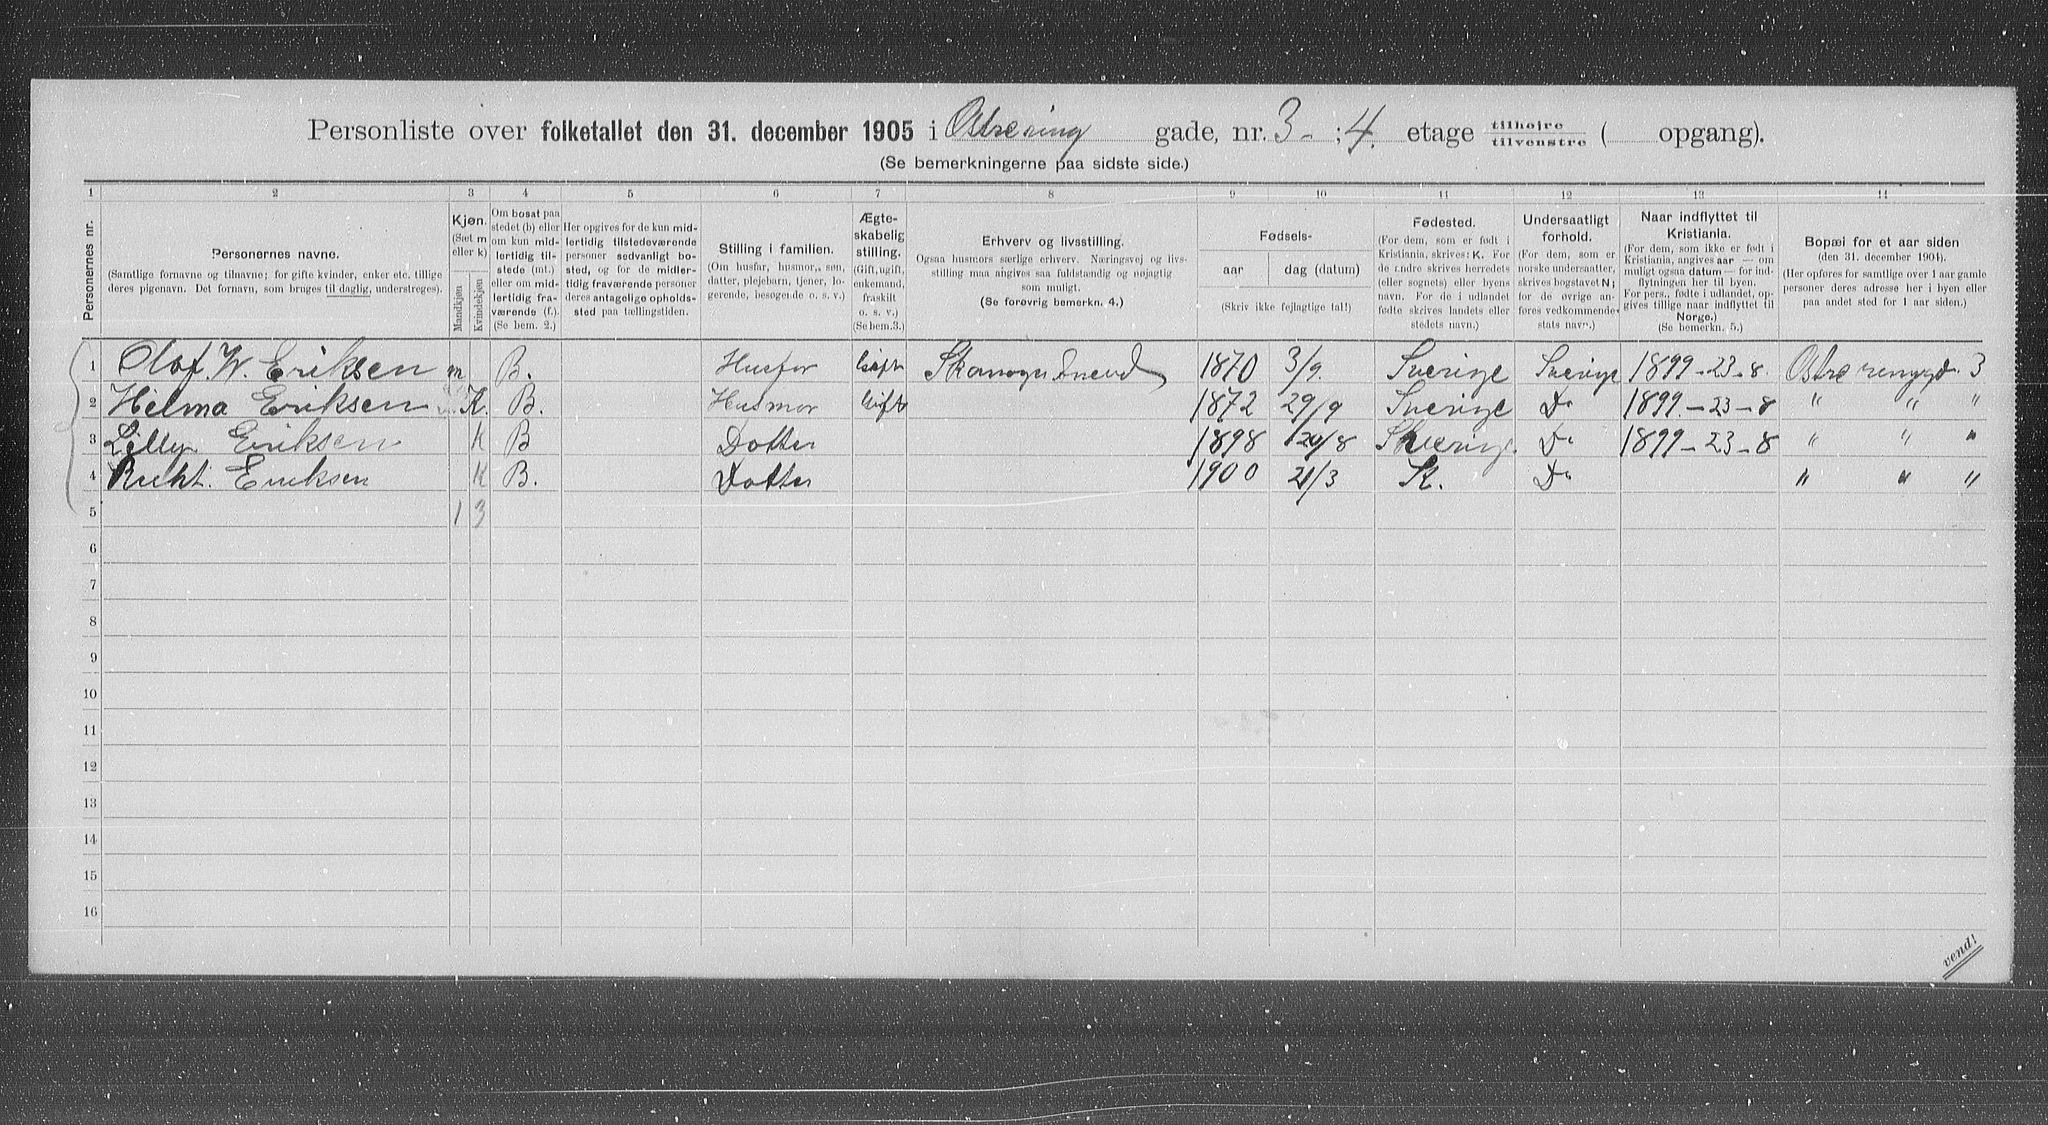 Personliste over folketallet den 31. december 1905 i Østre ring gade, nr. 3 - : 4. etage tilhøjre / tilvenstre ( opgang).
(Se bemerkningerne paa sidste side.)
1 2 3 4 5 6 7 8 9 10 11 12 13 14
Personernes nr.
Personernes navne.
(Samtlige fornavne og tilnavne; for gifte kvinder, enker etc. tillige
deres pigenavn. Det fornavn, som bruges til daglig, understreges).
Kjøn.
(Sæt m
eller k)
Mandkjøn
Kvindekjøn
Om bosat paa
stedet (b) eller
om kun mid-
lertidig til-
stede (mt.)
eller om mid-
lertidig fra-
værende (f.)
(Se bem. 2.)
Her opgives for de kun mid-
lertidig tilstedeværende
personer sedvanligt bo-
sted, og for de midler-
tidig fraværende personer
deres antagelige opholds-
sted paa tællingstiden.
Stilling i familien.
(Om husfar, husmor, søn,
datter, plejebarn, tjener, lo-
gerende, besøgende o. s. v.)
Ægte-
skabelig
stilling.
(Gift, ugift,
enkemand,
fraskilt
o. s. v.)
(Se bem.3.)
Erhverv og livsstilling.
Ogsaa husmors særlige erhverv. Næringsvej og livs-
stilling maa angives saa fuldstændig og nøjagtig
som muligt.
(Se forøvrig bemerkn. 4.)
Fødsels-
aar dag (datum)
(Skriv ikke fejlagtige tal!)
Fødested.
(For dem, som er født i
Kristiania, skrives: K. For
de andre skrives herredets
(eller sognets) eller byens
navn. For de i udlandet
fødte skrives landets eller
stedets navn.)
Undersaatligt
forhold.
(For dem, som er
norske undersaatter,
skrives bogstavet N;
for de øvrige an-
føres vedkommende
stats navn.)
Naar indflyttet til
Kristiania.
(For dem, som ikke er født i
Kristiania, angives aar — om
muligt ogsaa datum — for ind-
flytningen her til byen.
For pers., fødte i udlandet, op-
gives tillige naar indflyttet til
Norge.)
(Se bemerkn. 5.)
Bopæl for et aar siden
(den 31. december 1904).
(Her opføres for samtlige over 1 aar gamle
personer deres adresse her i byen eller
paa andet sted for 1 aar siden.)
1 Olof. W. Eriksen m B. Husfar Gift 1870 3/9. Sverige Sverige 1899-23-8. 3
2 Hilma Eriksen K. B. Husmor Gift 1872 29/9 Sverige Do 1899-23-8 " " "
3 Lilly Eriksen K B Dotter 1898 20/8 Sverige. Do 1899-23-8 " " "
4 Eriksen K B. Dotter 1900 21/3 K. Do " " "
5 1 3
6
7
8
9
10
11
12
13
14
15
16
vend!